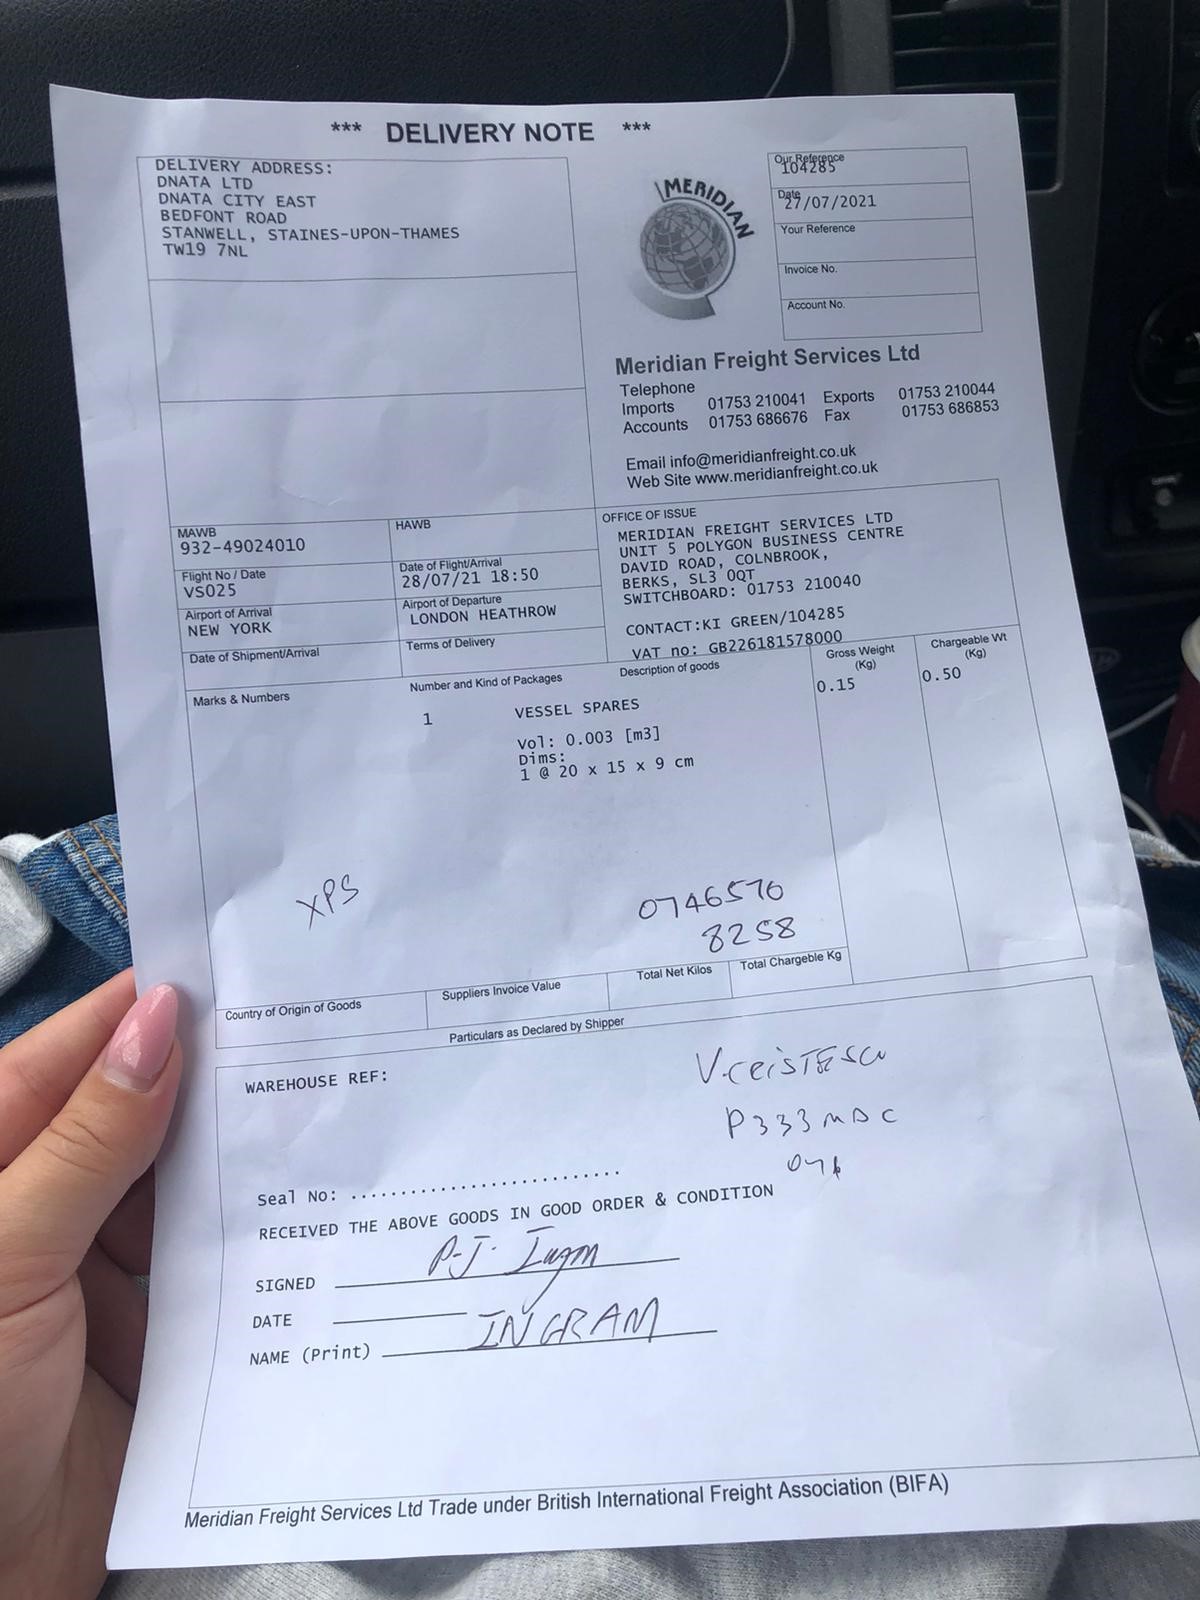 *** DELIVERY NOTE ***
DELIVERY ADDRESS:
DNATA LTD
DNATA CITY EAST
BEDFONT ROAD
STANWELL, STAINES-UPON-THAMES
TW19 7NL
MERIDIAN
Our Reference
104285
Date
27/07/2021
Your Reference
Invoice No.
Account No.
Meridian Freight Services Ltd
Telephone
Imports 01753 210041 Exports 01753 210044
Accounts 01753 686676 Fax 01753 686853
Email info@meridianfreight.co.uk
Web Site www.meridianfreight.co.uk
MAWB
932-49024010
HAWB
Flight No / Date
VS025
Date of Flight/Arrival
28/07/21 18:50
Airport of Arrival
NEW YORK
Airport of Departure
LONDON HEATHROW
Date of Shipment/Arrival
Terms of Delivery
OFFICE OF ISSUE
MERIDIAN FREIGHT SERVICES LTD
UNIT 5 POLYGON BUSINESS CENTRE
DAVID ROAD, COLNBROOK,
BERKS, SL3 0QT
SWITCHBOARD: 01753 210040
CONTACT:KI GREEN/104285
VAT no: GB226181578000
Marks & Numbers
Number and Kind of Packages
Description of goods
Gross Weight
(Kg)
Chargeable Wt
(Kg)
1 VESSEL SPARES 0.15 0.50
Vol: 0.003 [m3]
Dims:
1 @ 20 x 15 x 9 cm
XPS
0746570
8258
Country of Origin of Goods
Suppliers Invoice Value
Total Net Kilos
Total Chargeble Kg
Particulars as Declared by Shipper
WAREHOUSE REF:
P333MDC
Seal No: ...........................
RECEIVED THE ABOVE GOODS IN GOOD ORDER & CONDITION
SIGNED P-J.
DATE
NAME (Print) INGRAM
Meridian Freight Services Ltd Trade under British International Freight Association (BIFA)